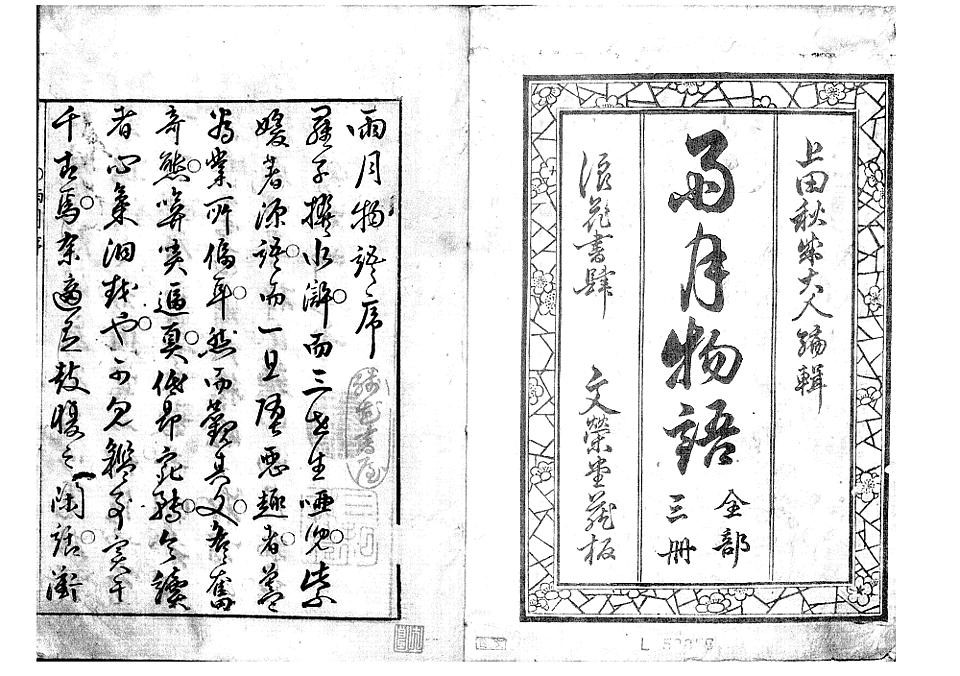 上田秋成大人編輯
雨月物語
全部
三冊
浪花書肆 文榮堂蔵板
雨月物語序
羅子撰水滸。而三世生唖児。紫
媛著源語。而一旦堕悪趣者。蓋
為業所偪耳。然而観其文。各奮
奇態。唵哢逼真。低昂宛轉。令讀
者心氣洞越也。可見鑑事実于
千古焉。余適有鼓腹之閑話。衝